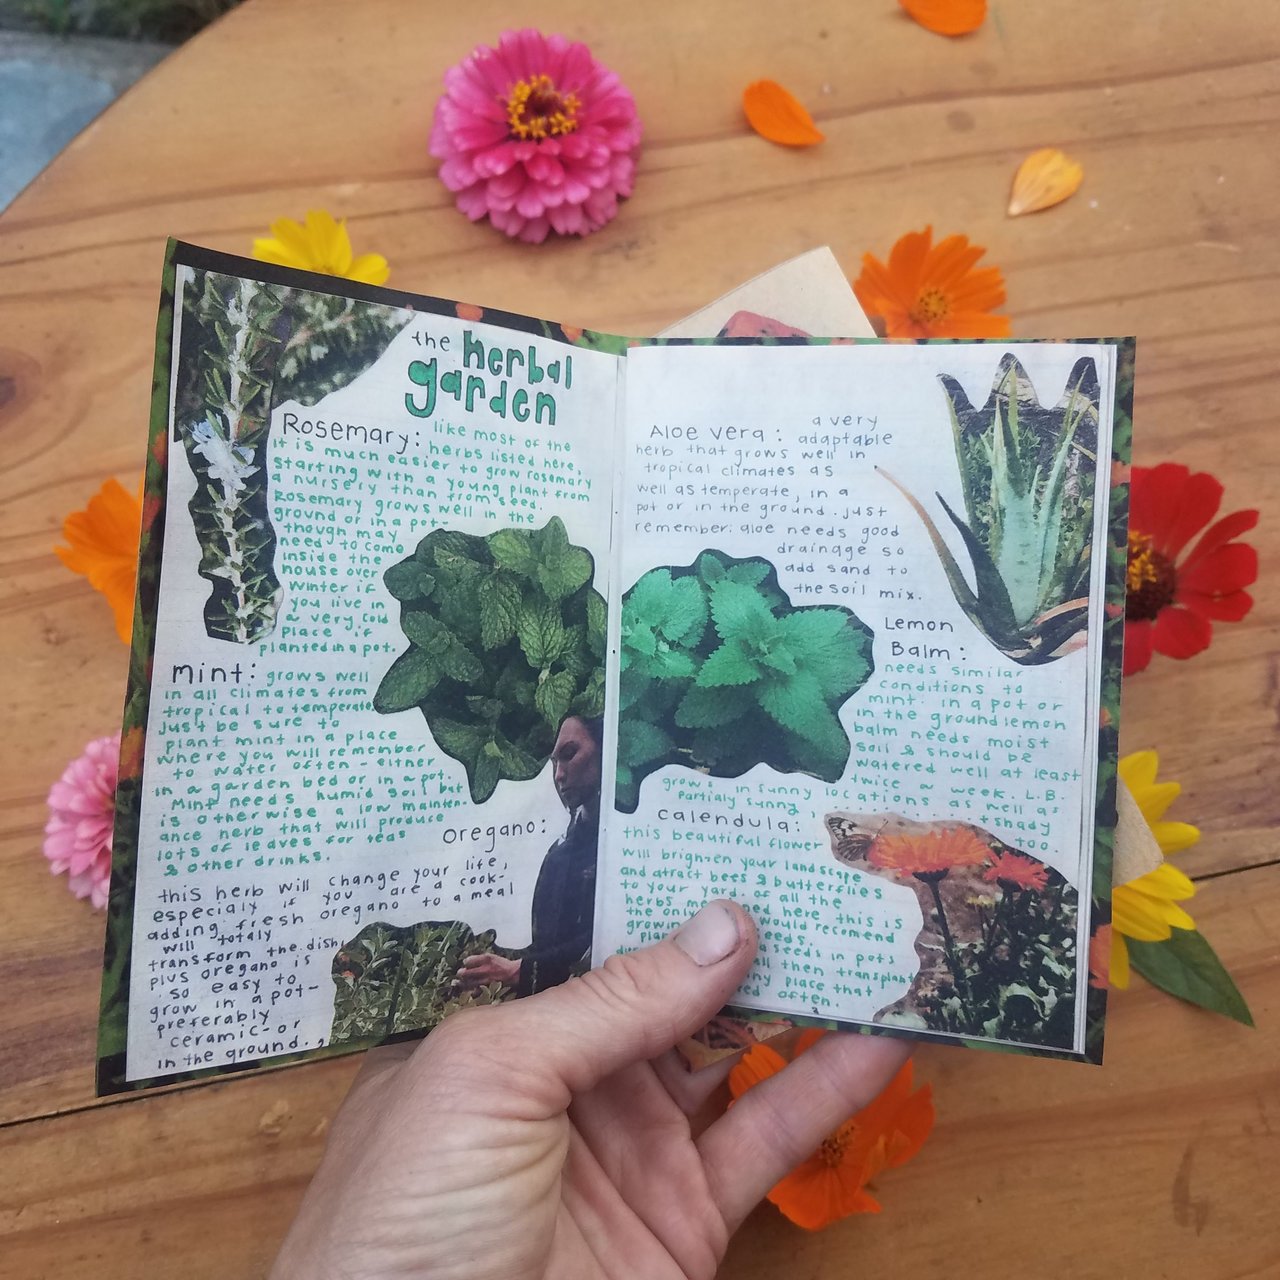 the herbal
garden
Rosemary: like most of the
herbs listed here,
it is much easier to grow rosemary
starting with a young plant from
a nursery than from seed.
Rosemary grows well in the
ground or in a pot-
though may
need to come
inside the
house over
winter if
you live in
a very cold
place if
planted in a pot.
mint: grows well
in all climates from
tropical to temperate
just be sure to
plant mint in a place
where you will remember
to water often - either
in a garden bed or in a pot.
Mint needs humid soil but
is otherwise a low mainten-
ance herb that will produce
lots of leaves for teas
& other drinks.
oregano:
this herb will change your life,
especialy if you are a cook-
adding fresh oregano to a meal
will totaly
transform the dish,
plus oregano is
so easy to
grow in a pot-
preferably
ceramic-or
in the ground.
Aloe vera: a very
adaptable
herb that grows well in
tropical climates as
well as temperate, in a
pot or in the ground. just
remember: aloe needs good
drainage so
add sand to
the soil mix.
Lemon
Balm:
needs similar
conditions to
mint. in a pot or
in the ground lemon
balm needs moist
soil & should be
watered well at least
twice a week. L.B.
grows in sunny locations as well as
partialy sunny + shady
too.
calendula:
this beautiful flower
will brighten your landscape
and atract bees & butterflies
to your yard. of all the
herbs here this is
the only would recomend
growin
eeds.
seeds in pots
all then transplant
place that
often.